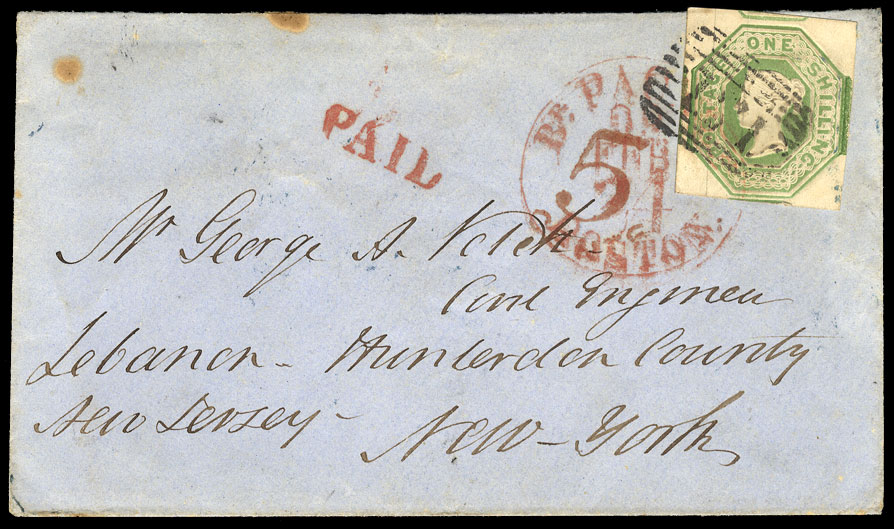 POSTAGE ONE SHILLING
PAID
Br. PACKET
5
BOSTON.
Mr George A.
Civil Engineer
Lebanon - Hunterdon County
New Jersey -
New - York